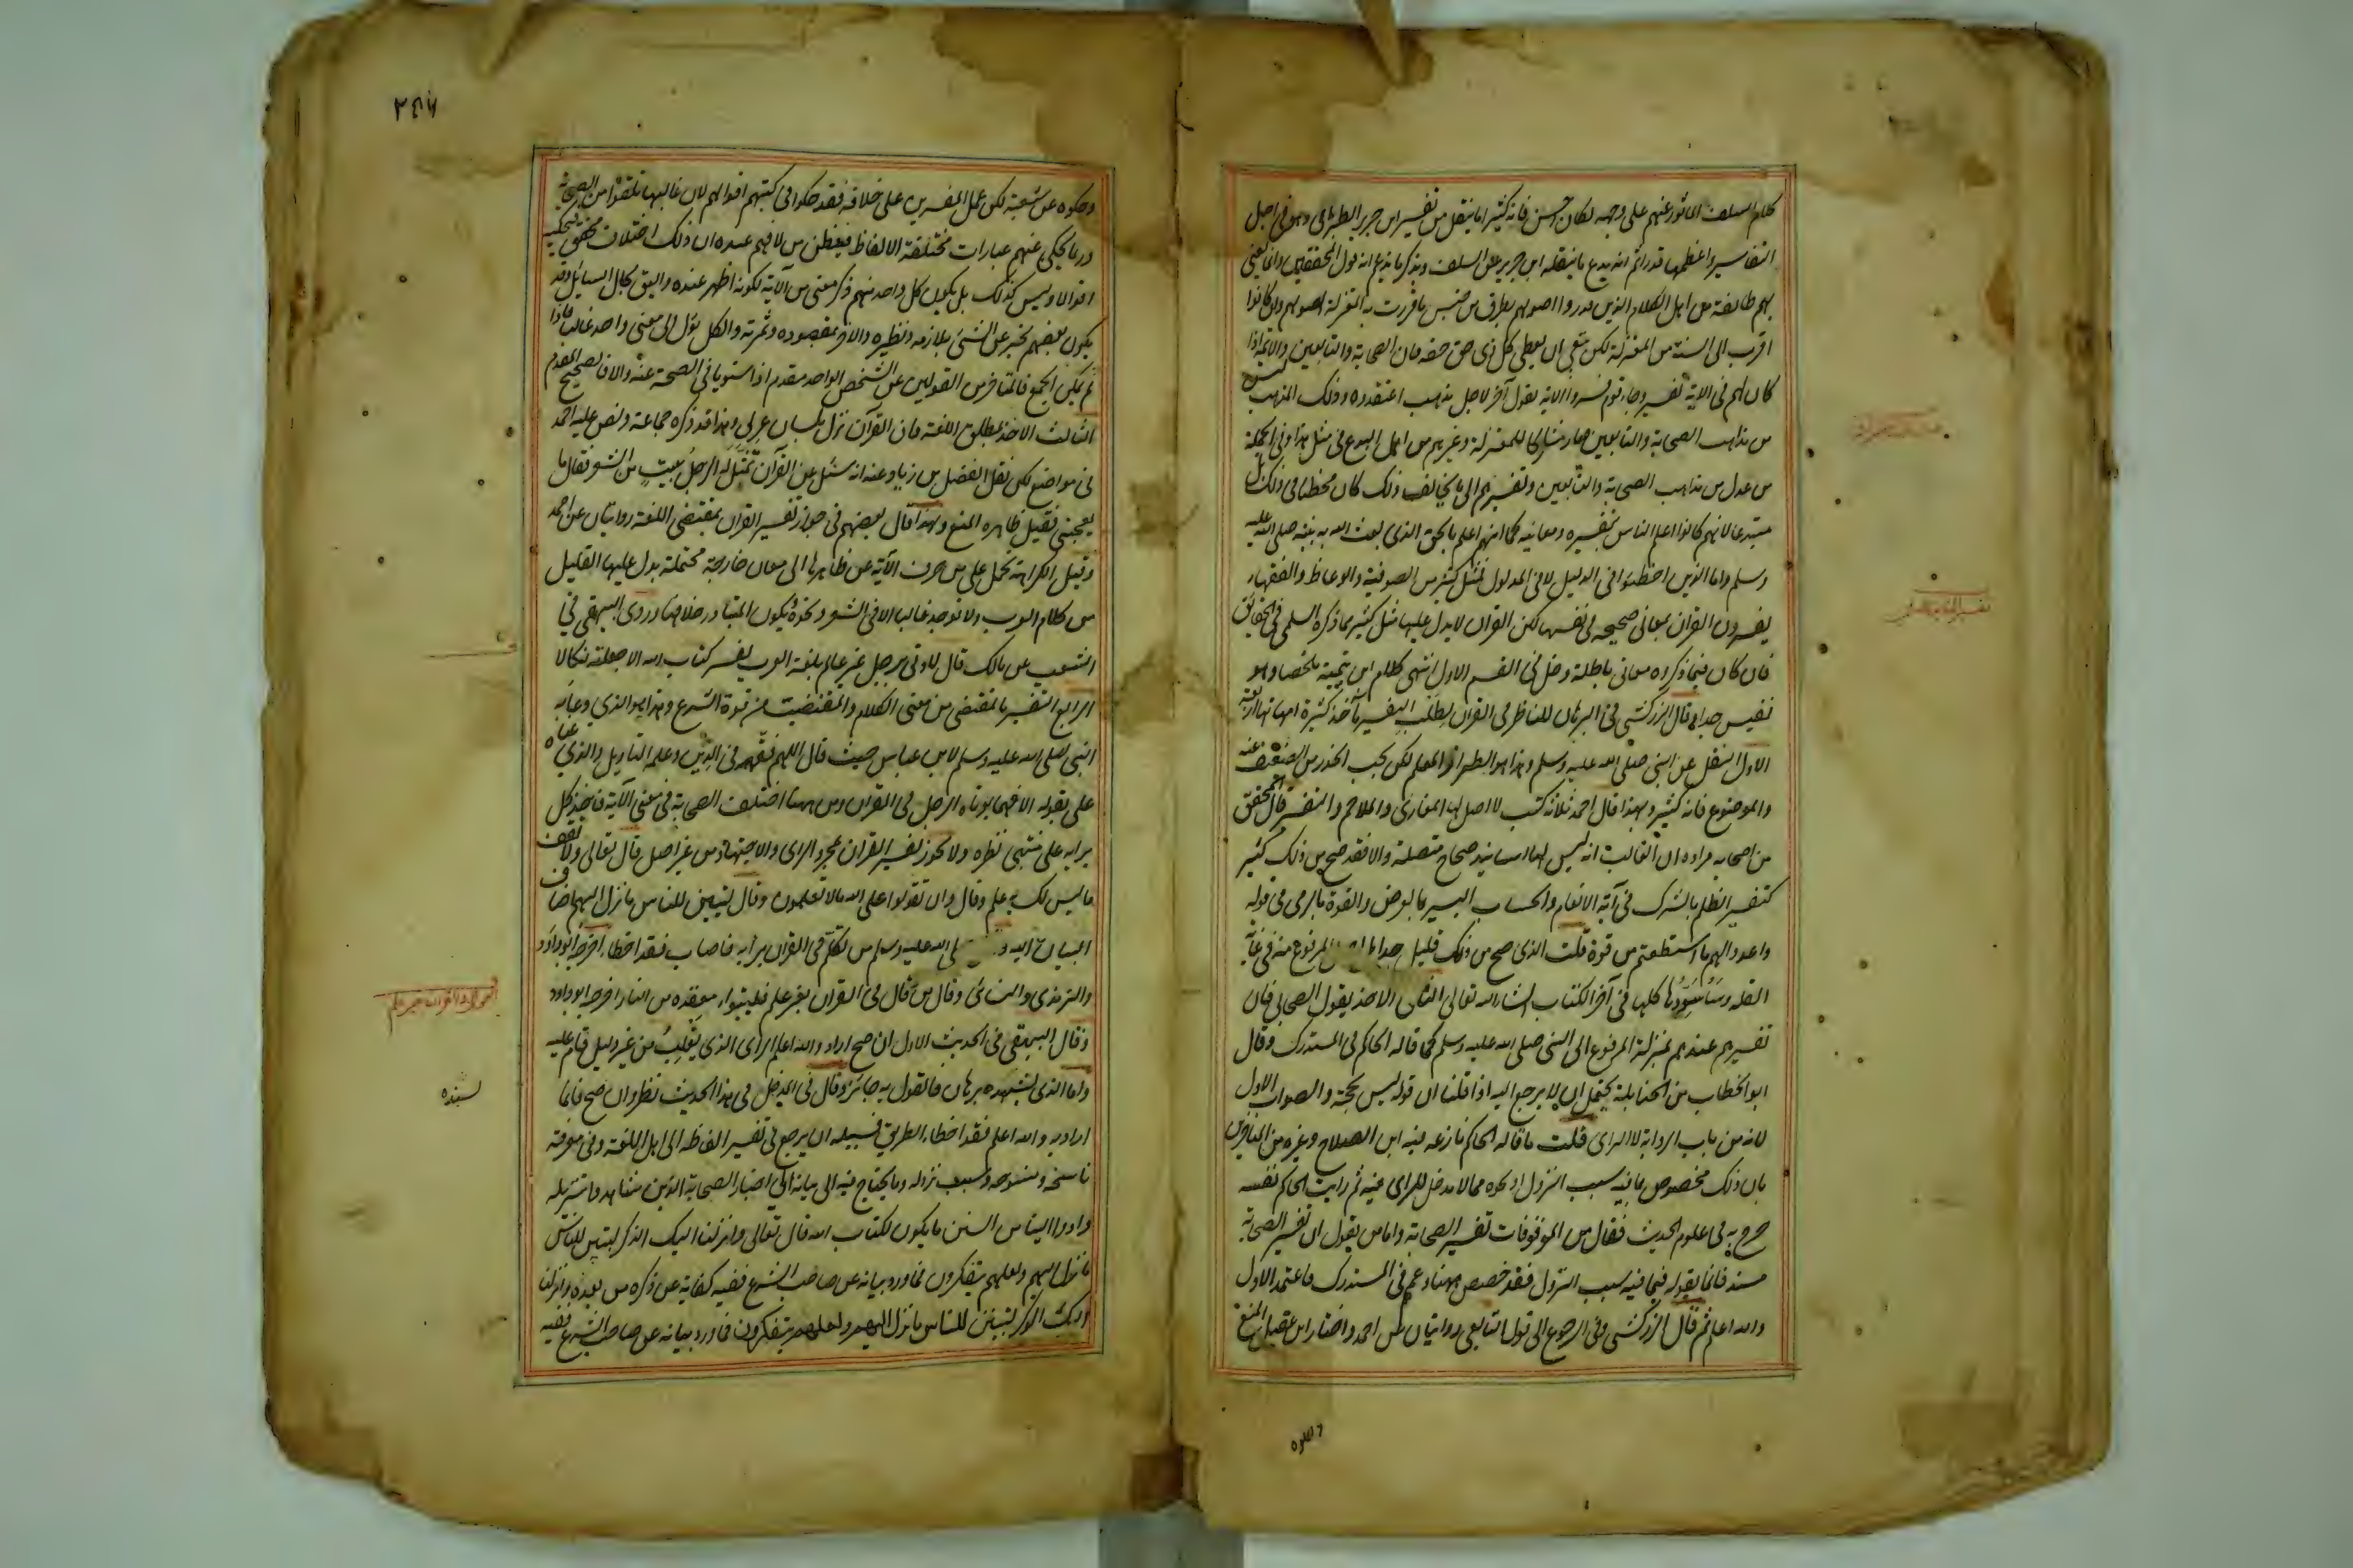 كلام السلف المأثور عنهم على وجهه لكان حسن فانه كثيرا ما ينقل من تفسير ابن جرير الطبرى وهو من اجل
التفاسير واعظمها قدرا ثم انه يدع ما ينقله ابن جرير عن السلف ويذكر ما يزعم انه قول المحققين وانما يعنى
بهم طائفة من اهل الكلام الذين قرروا اصولهم بطرق من جنس ما قررت به المعتزلة اصولهم وان كانوا
اقرب الى السنة من المعتزلة لكن ينبغى ان يعطى كل ذى حق حقه فان الصحابة والتابعين والائمة اذا
كان لهم فى الاية تفسير وجاء قوم فسروا الاية بقول آخر لاجل مذهب اعتقدوه وذلك المذهب ليس
من مذاهب الصحابة والتابعين صار مشاركا للمعتزلة وغيرهم من اهل البدع فى مثل هذا وفى الجملة
من عدل من مذاهب الصحابة والتابعين وتفسيرهم الى ما يخالف ذلك كان مخطئا فى ذلك بل
مبتدعا لانهم كانوا اعلم الناس بتفسيره ومعانيه كما انهم اعلم بالحق الذى بعث الله به نبيه صلى الله عليه
وسلم واما الذين اخطئوا فى الدليل لا فى المدلول فمثل كثير من الصوفية والوعاظ والفقهاء
يفسرون القرآن بمعانى صحيحه فى نفسها لكن القرآن لا يدل عليها مثل كثير مما ذكره السلمى فى الحقايق
فان كان فيما ذكروه معانى باطلة دخل فى القسم الاول انتهى كلام ابن تيمية ملخصا وهو
نفيس جدا قال الزركشى فى البرهان للناظر فى القرآن لطلب التفسير مآخذ كثيرة امهاتها اربعة
الاول النقل عن النبى صلى الله عليه وسلم وهذا هو الطراز المعلم لكن يجب الحذر من الضعيف منه
والموضوع فانه كثير ولهذا قال احمد ثلاثة كتب لا اصل لها المغازى والملاحم والتفسير قال المحققون
من اصحابه مراده ان الغالب انه ليس لها اسانيد صحاح متصلة والا فقد صح من ذلك كثير
كتفسير الظلم بالشرك فى آية الانعام والحساب اليسير بالعرض والقوة بالرمى فى قوله
واعدوا لهم ما استطعتم من قوة قلت الذى صح من ذلك قليل جدا بل اصل المرفوع منه فى غاية
القلة وسأسردها كلها فى آخر الكتاب انشاء الله تعالى الثانى الاخذ بقول الصحابى فان
تفسيرهم عندهم بمنزلة المرفوع الى النبى صلى الله عليه وسلم كما قاله الحاكم فى المستدرك وقال
ابو الخطاب من الحنابلة يحتمل ان لا يرجع اليه اذا قلنا ان قوله ليس بحجة والصواب الاول
لانه من باب الرواية لا الراى قلت ما قاله الحاكم نازعه فيه ابن الصلاح وغيره من المتأخرين
بان ذلك مخصوص بما فيه سبب النزول او نحوه مما لا مدخل للراى فيه ثم رأيت الحاكم نفسه
صرح به فى علوم الحديث فقال من الموقوفات تفسير الصحابة واما من يقول ان تفسير الصحابة
مسند فانما يقوله فيما فيه سبب النزول فقد خصص هنا وعمم فى المستدرك فاعتمد الاول
والله اعلم ثم قال الزركشى وفى الرجوع الى قول التابعى روايتان عن احمد واختار ابن عقيل المنع
وحكوه
٢٤٦
وحكوه عن شعبة لكن عمل المفسرين على خلافه فقد حكوا فى كتبهم اقوالهم لان غالبها تلقوها من الصحابة
وربما يحكى عنهم عبارات مختلفة الالفاظ فيظن من لا فهم عنده ان ذلك اختلاف محقق فيحكيه
اقوالا وليس كذلك بل يكون كل واحد منهم ذكر معنى من الآية لكونه اظهر عنده او اليق بحال السائل وقد
يكون بعضهم يخبر عن الشئ بلازمه ونظيره والآخر بمقصوده وثمرته والكل يؤل الى معنى واحد غالبا فاذا
لم يمكن الجمع فالمتأخر من القولين عن الشخص الواحد مقدم اذا استويا فى الصحة عنه والا فالصحيح المقدم
الثالث الاخذ بمطلق اللغة فان القرآن نزل بلسان عربى وهذا قد ذكره جماعة ونص عليه احمد
فى مواضع لكن نقل الفضل بن زياد عنه انه سئل عن القرآن تمثل له الرجل ببيت من الشعر فقال ما
يعجبنى فقيل ظاهره المنع ولهذا قال بعضهم فى جواز تفسير القرآن بمقتضى اللغة روايتان عن احمد
وقيل الكراهة تحمل على من صرف الآية عن ظاهرها الى معان خارجة محتملة يدل عليها القليل
من كلام العرب ولا توجد غالبا الا فى الشعر ونحوه ويكون المتبادر خلافها وروى البيهقى فى
الشعب عن مالك قال لا اوتى برجل غير عالم بلغة العرب يفسر كتاب الله الا جعلته نكالا
الرابع التفسير بالمقتضى من معنى الكلام والمقتضب من قوة الشرع وهذا هو الذى دعا به
النبى صلى الله عليه وسلم لابن عباس حيث قال اللهم فقهه فى الدين وعلمه التاويل والذى عناه
على بقوله الا فهما يوتاه الرجل فى القرآن ومن هنا اختلف الصحابة فى معنى الآية فاخذ كل
برايه على منتهى نظره ولا يجوز تفسير القرآن بمجرد الراى والاجتهاد من غير اصل قال تعالى ولا تقف
ما ليس لك به علم وقال وان تقولوا على الله ما لا تعلمون وقال لتبين للناس ما نزل اليهم اضاف
البيان اليه و لى الله عليه وسلم من تكلم فى القرآن برأيه فاصاب فقد اخطا اخرجه ابو داود
والترمذى والنسائى وقال من قال فى القرآن بغير علم فليتبوا مقعده من النار اخرجه ابو داود
وقال البيهقى فى الحديث الاول ان صح اراد والله اعلم الراى الذى يغلب من غير دليل قام عليه
واما الذى يشهده برهان فالقول به جائز وقال فى المدخل فى هذا الحديث نظر وان صح فانما
اراد به والله اعلم فقد اخطاء الطريق فسبيله ان يرجع فى تفسير الفاظه الى اهل اللغة وفى معرفة
ناسخه ومنسوخه وسبب نزوله وما يحتاج فيه الى بيانه الى اخبار الصحابة الذين شاهدوا تنزيله
وادوا الينا من السنن ما يكون لكتاب الله قال تعالى وانزلنا اليك الذكر لتبين للناس
ما نزل اليهم ولعلهم يتفكرون فما ورد بيانه عن صاحب الشرع ففيه كفاية عن ذكره من بعده وانزلنا
اليك الذكر لتبين للناس ما نزل اليهم ولعلهم يتفكرون فما ورد بيانه عن صاحب الشرع ففيه